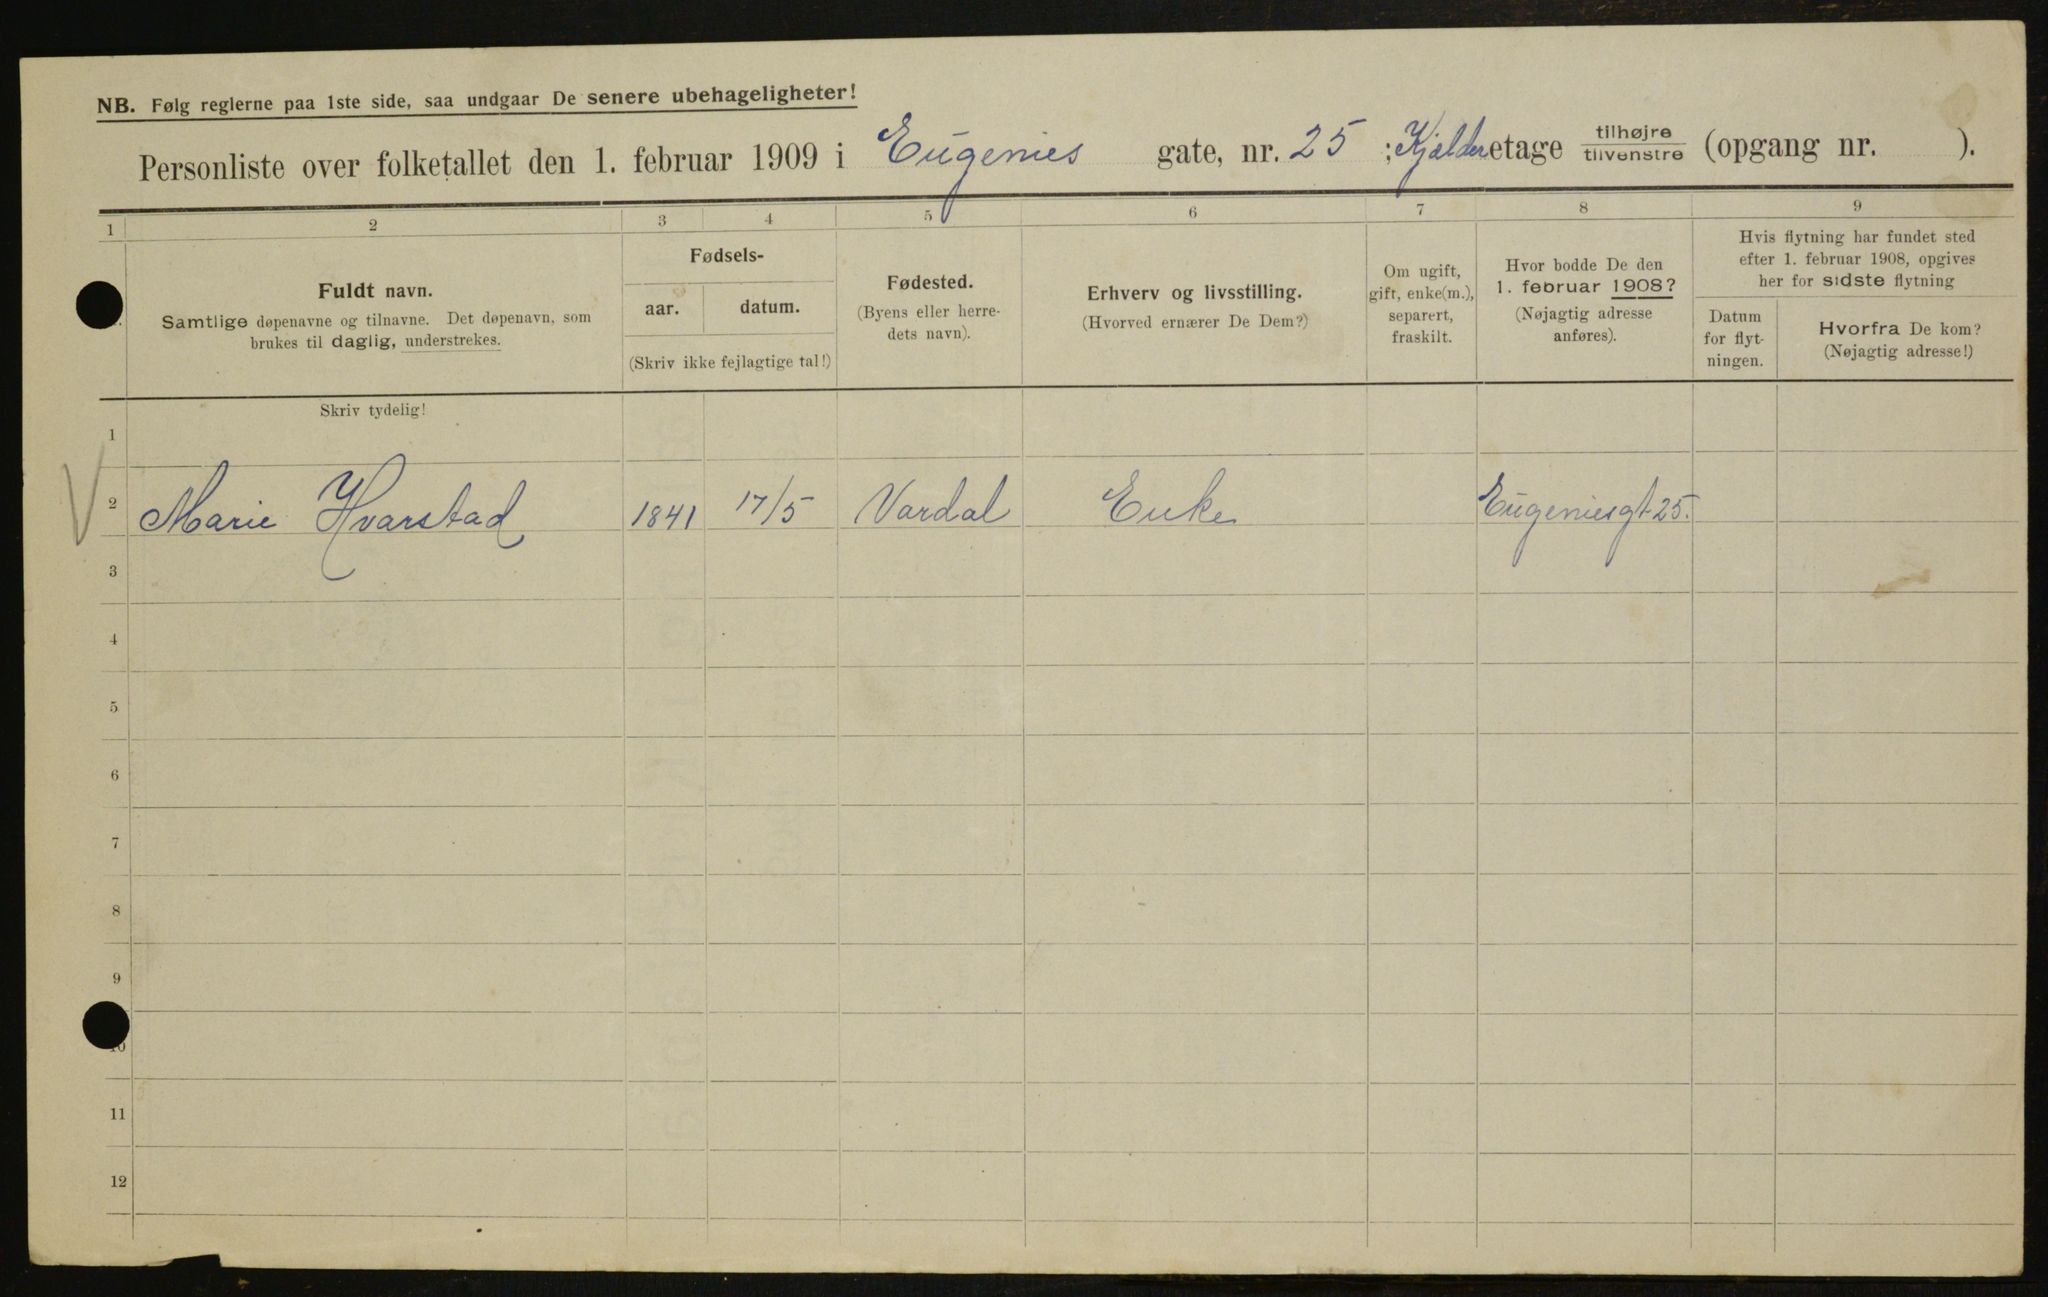 NB. Følg reglerne paa 1ste side, saa undgaar De senere ubehageligheter!
Personliste over folketallet den 1. februar 1909 i Eugenies gate, nr. 25 ; Kjelder etage tilhøjre/tilvenstre (opgang nr. ).
1 2 3 4 5 6 7 8 9
Fuldt navn.
Samtlige døpenavne og tilnavne. Det døpenavn, som
brukes til daglig, understrekes.
Skriv tydelig!
Fødsels-
aar. datum.
(Skriv ikke fejlagtige tal!)
Fødested.
(Byens eller herre-
dets navn).
Erhverv og livsstilling.
(Hvorved ernærer De Dem?)
Om ugift,
gift, enke(m.),
separert,
fraskilt.
Hvor bodde De den
1. februar 1908?
(Nøjagtig adresse
anføres).
Hvis flytning har fundet sted
efter 1. februar 1908, opgives
her for sidste flytning
Datum
for flyt-
ningen.
Hvorfra De kom?
(Nøjagtig adresse!)
1
2 Marie Hvarstad 1841 17/5 Vardal Enke Eugeniesgt 25.
3
4
5
6
7
8
9
10
11
12